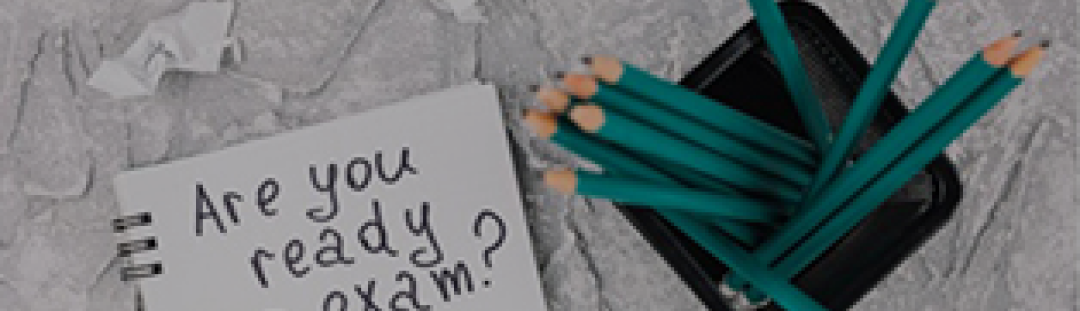 Are you
ready
exam?